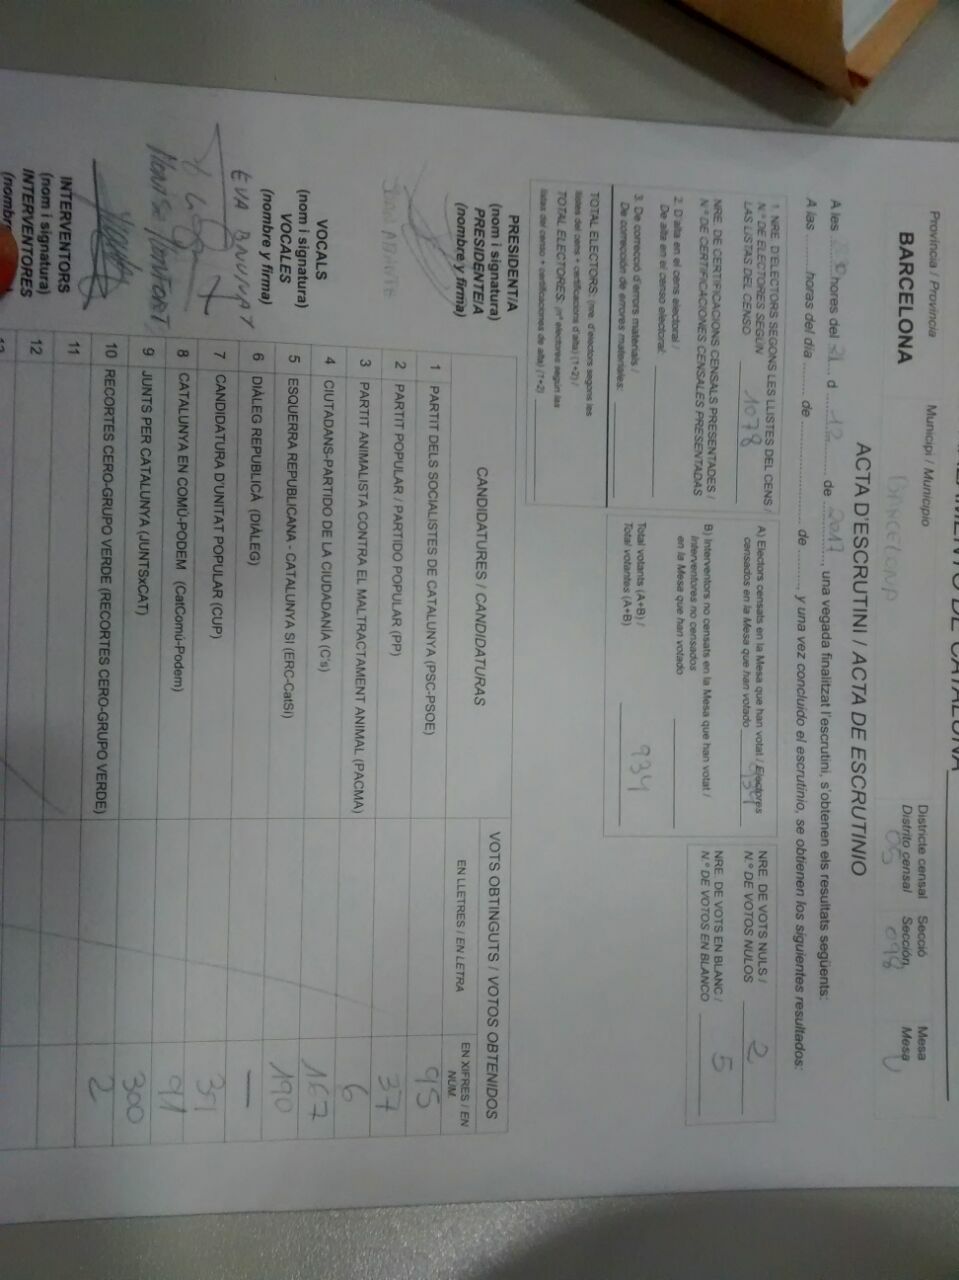 Província / Provincia
BARCELONA
Municipi / Municipio
BARCELONA
Districte censal
Distrito censal
05
Secció
Sección
098
Mesa
Mesa
U
ACTA D'ESCRUTINI / ACTA DE ESCRUTINIO
A les hores del 21 d 12 de 2017, una vegada finalitzat l'escrutini, s'obtenen els resultats següents:
A las horas del día de de , y una vez concluido el escrutinio, se obtienen los siguientes resultados:
1. NRE. D'ELECTORS SEGONS LES LLISTES DEL CENS /
N.º DE ELECTORES SEGÚN
LAS LISTAS DEL CENSO 1078
NRE. DE CERTIFICACIONS CENSALS PRESENTADES /
N.º DE CERTIFICACIONES CENSALES PRESENTADAS
2. D'alta en el cens electoral /
De alta en el censo electoral:
3. De correcció d'errors materials /
De corrección de errores materiales:
TOTAL ELECTORS: (nre. d'electors segons les
llistes del cens + certificacions d'alta) (1+2) /
TOTAL ELECTORES: (nº electores según las
listas del censo + certificaciones de alta) (1+2)
A) Electors censats en la Mesa que han votat / Electores
censados en la Mesa que han votado 934
B) Interventors no censats en la Mesa que han votat /
Interventores no censados
en la Mesa que han votado
Total votants (A+B) /
Total votantes (A+B) 934
NRE. DE VOTS NULS /
N.º DE VOTOS NULOS 2
NRE. DE VOTS EN BLANC /
N.º DE VOTOS EN BLANCO 5
PRESIDENT/A
(nom i signatura)
PRESIDENTE/A
(nombre y firma)
VOCALS
(nom i signatura)
VOCALES
(nombre y firma)
EVA
INTERVENTORS
(nom i signatura)
INTERVENTORES
(nombre
CANDIDATURES / CANDIDATURAS
VOTS OBTINGUTS / VOTOS OBTENIDOS
EN LLETRES / EN LETRA
EN XIFRES / EN NÚM.
1 PARTIT DELS SOCIALISTES DE CATALUNYA (PSC-PSOE) 95
2 PARTIT POPULAR / PARTIDO POPULAR (PP) 37
3 PARTIT ANIMALISTA CONTRA EL MALTRACTAMENT ANIMAL (PACMA) 6
4 CIUTADANS-PARTIDO DE LA CIUDADANÍA (C's) 167
5 ESQUERRA REPUBLICANA - CATALUNYA SÍ (ERC-CatSí) 190
6 DIÀLEG REPUBLICÀ (DIÀLEG) —
7 CANDIDATURA D'UNITAT POPULAR (CUP) 39
8 CATALUNYA EN COMÚ-PODEM (CatComú-Podem) 91
9 JUNTS PER CATALUNYA (JUNTSxCAT) 300
10 RECORTES CERO-GRUPO VERDE (RECORTES CERO-GRUPO VERDE) 2
11
12